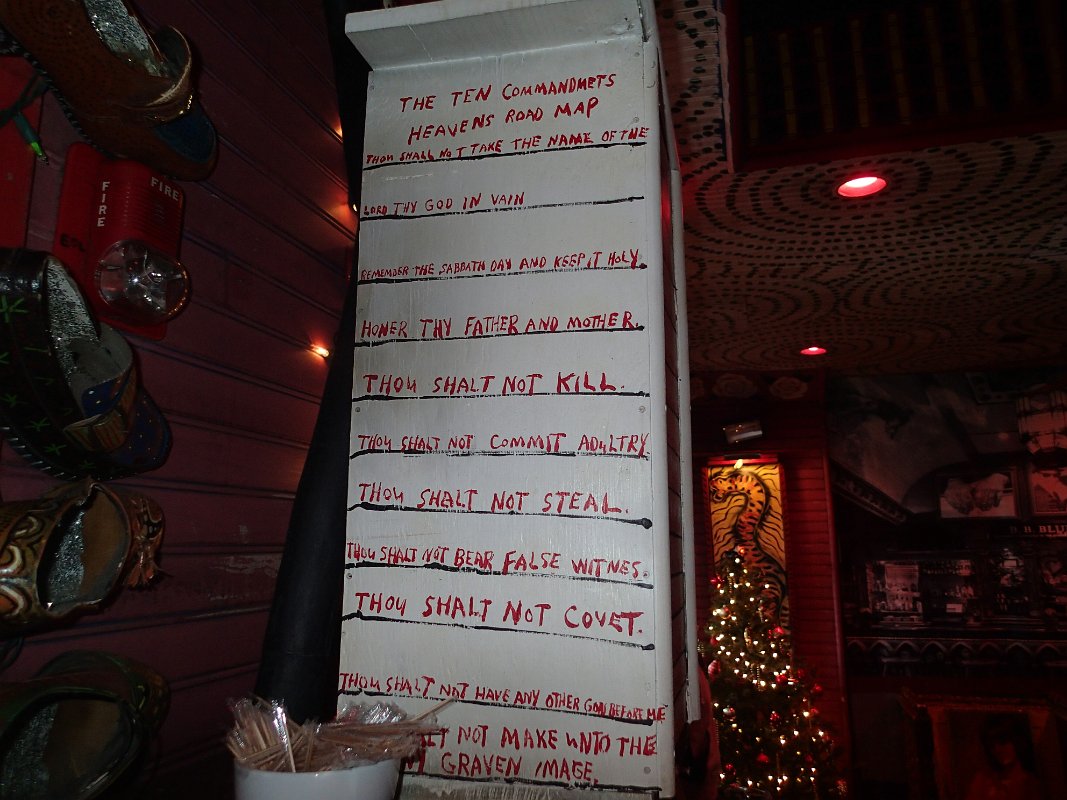 THE TEN COMMANDMETS
HEAVENS ROAD MAP
THOU SHALL NOT TAKE THE NAME OF THE
LORD THY GOD IN VAIN
REMEMBER THE SABBATH DAY AND KEEP IT HOLY.
HONER THY FATHER AND MOTHER.
THOU SHALT NOT KILL.
THOU SHALT NOT COMMIT ADULTRY
THOU SHALT NOT STEAL.
THOU SHALT NOT BEAR FALSE WITNES.
THOU SHALT NOT COVET.
THOU SHALT NOT HAVE ANY OTHER GODS BEFORE ME
NOT MAKE UNTO THE
GRAVEN IMAGE.
FIRE
FIRE
BLU